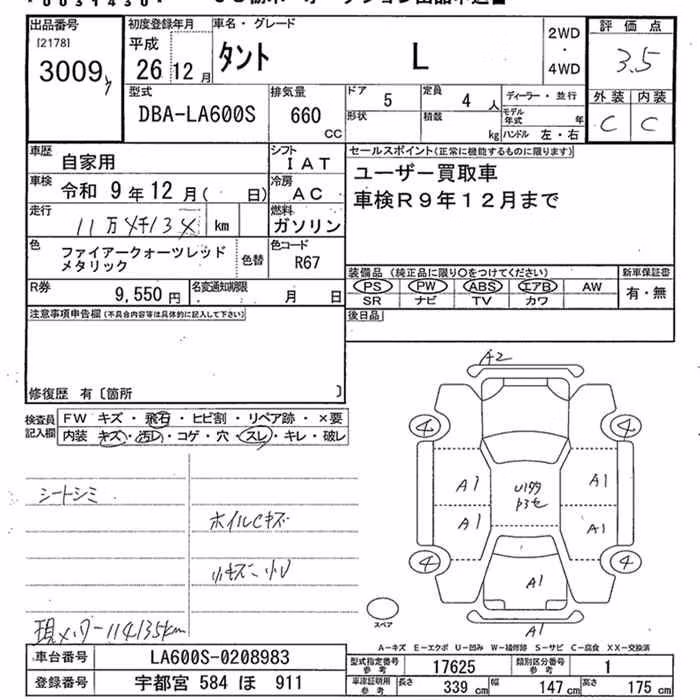 出品番号 初度登録年月 車名・グレード 評価点
[2178] 平成 2WD
3009 26 12月 タント L ・ 3.5
4WD
型式 排気量 ドア 定員 ディーラー・並行 外装 内装
DBA-LA600S 660 CC 5 4人 モデル年式 年 C C
形状 積載 kg ハンドル 左・右
車歴 自家用 シフト IAT セールスポイント(正常に機能するものに限ります)
車検 令和 9年 12月( 日) 冷房 AC ユーザー買取車
走行 11万4千134 km 燃料 ガソリン 車検R9年12月まで
色 ファイアークォーツレッド 色替 色コード
メタリック R67
装備品 (純正品に限り○をつけてください) 新車保証書
R券 9,550円 名変通知期限 月 日 PS PW ABS エアB AW 有・無
SR ナビ TV カワ
注意事項申告欄(不具合内容等は具体的に記入して下さい) 後日品
修復歴 有〔箇所 〕
検査員 FW キズ・飛石・ヒビ割・リペア跡・×要
記入欄 内装 キズ・汚レ・コゲ・穴・スレ・キレ・破レ
A2
4 4
A1 A1
A1 A1
4 4
A1
A1
シートシミ
ホイルCキズ
小キズ、小U
現メーター114135km
スペア
A-キズ E-エクボ U-凹み W-補修跡 S-サビ C-腐食 XX-交換済
車台番号 LA600S-0208983 型式指定番号 参考 17625 類別区分番号 参考 1
登録番号 宇都宮 584 ほ 911 車庫証明用 参考 長さ 339 cm 幅 147 cm 高さ 175 cm